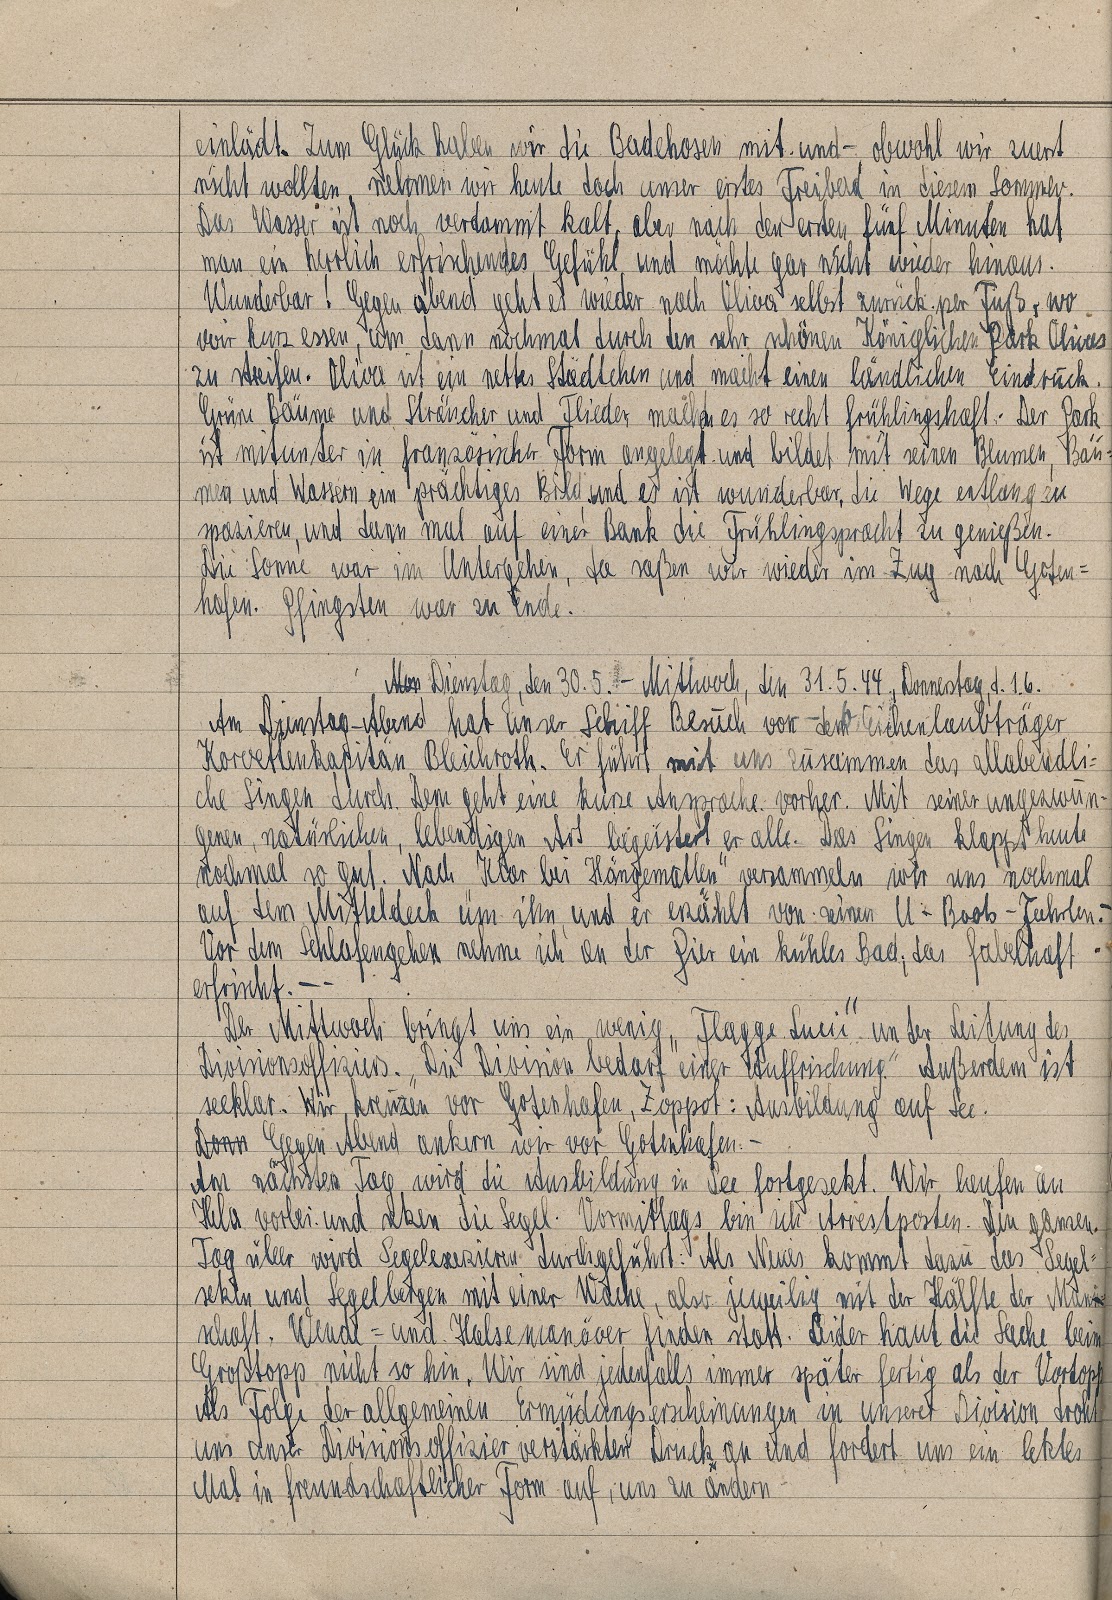 einlädt. Zum Glück haben wir die Badehosen mit und – obwohl wir zuerst
nicht wollten, nehmen wir heute doch unser erstes Freibad in diesem Sommer.
Das Wasser ist noch verdammt kalt, aber nach den ersten fünf Minuten hat
man ein herrlich erfrischendes Gefühl und möchte gar nicht wieder hinaus.
Wunderbar! Gegen abend geht es wieder nach Oliva selbst zurück per Fuß, wo
wir kurz essen, um dann nochmal durch den sehr schönen Königlichen Park Olivas
zu streifen. Oliva ist ein nettes Städtchen und macht einen ländlichen Eindruck.
Grüne Bäume und Sträucher und Flieder machen es so recht frühlingshaft. Der Park
ist mitunter in französischer Form angelegt und bildet mit seinen Blumen, Bäu-
men und Wassern ein prächtiges Bild und es ist wunderbar, die Wege entlang zu
spazieren, und dann mal auf einer Bank die Frühlingspracht zu genießen.
Die Sonne war im Untergehen, da saßen wir wieder im Zug nach Goten=
hafen. Pfingsten war zu Ende.
Mon Dienstag, den 30.5. – Mittwoch, den 31.5.44, Donnerstag d. 1.6.
Am Dienstag-Abend hat unser Schiff Besuch von dem Eichenlaubträger
Korvettenkapitän Bleichroth. Er führt mit uns zusammen das allabendli=
che Singen durch. Dem geht eine kurze Ansprache vorher. Mit seiner ungezwun-
genen, natürlichen, lebendigen Art begeistert er alle. Das Singen klappt heute
nochmal so gut. Nach "Klar bei Hängematten" versammeln wir uns nochmal
auf dem Mitteldeck um ihn und er erzählt von seinen U-Boots-Fahrten.–
Vor dem Schlafengehen nehme ich an der Pier ein kühles Bad, das fabelhaft
erfrischt. – –
Der Mittwoch bringt uns ein wenig "Flagge Lucie" unter Leitung des
Divisionsoffiziers. "Die Division bedarf einer Auffrischung" Außerdem ist
seeklar. Wir kreuzen vor Gotenhafen, Zoppot: Ausbildung auf See.
Dann Gegen Abend ankern wir vor Gotenhafen. –
Am nächsten Tag wird die Ausbildung in See fortgesetzt. Wir laufen an
Hela vorbei und setzen die Segel. Vormittags bin ich Arrestposten. Den ganzen
Tag über wird Segelexezieren durchgeführt: Als Neues kommt dazu das Segel=
setzen und Segelbergen mit einer Wache, also jeweilig mit der Hälfte der Mann
schaft. Wende= und Halsemanöver finden statt. Leider haut die Sache beim
Großtopp nicht so hin. Wir sind jedenfalls immer später fertig als der Vortopp
Als Folge der allgemeinen Ermüdungserscheinungen in unserer Division droht
uns unser Divisionsoffizier verstärkten Druck an und fordert uns ein letztes
Mal in freundschaftlicher Form auf, uns zu ändern –